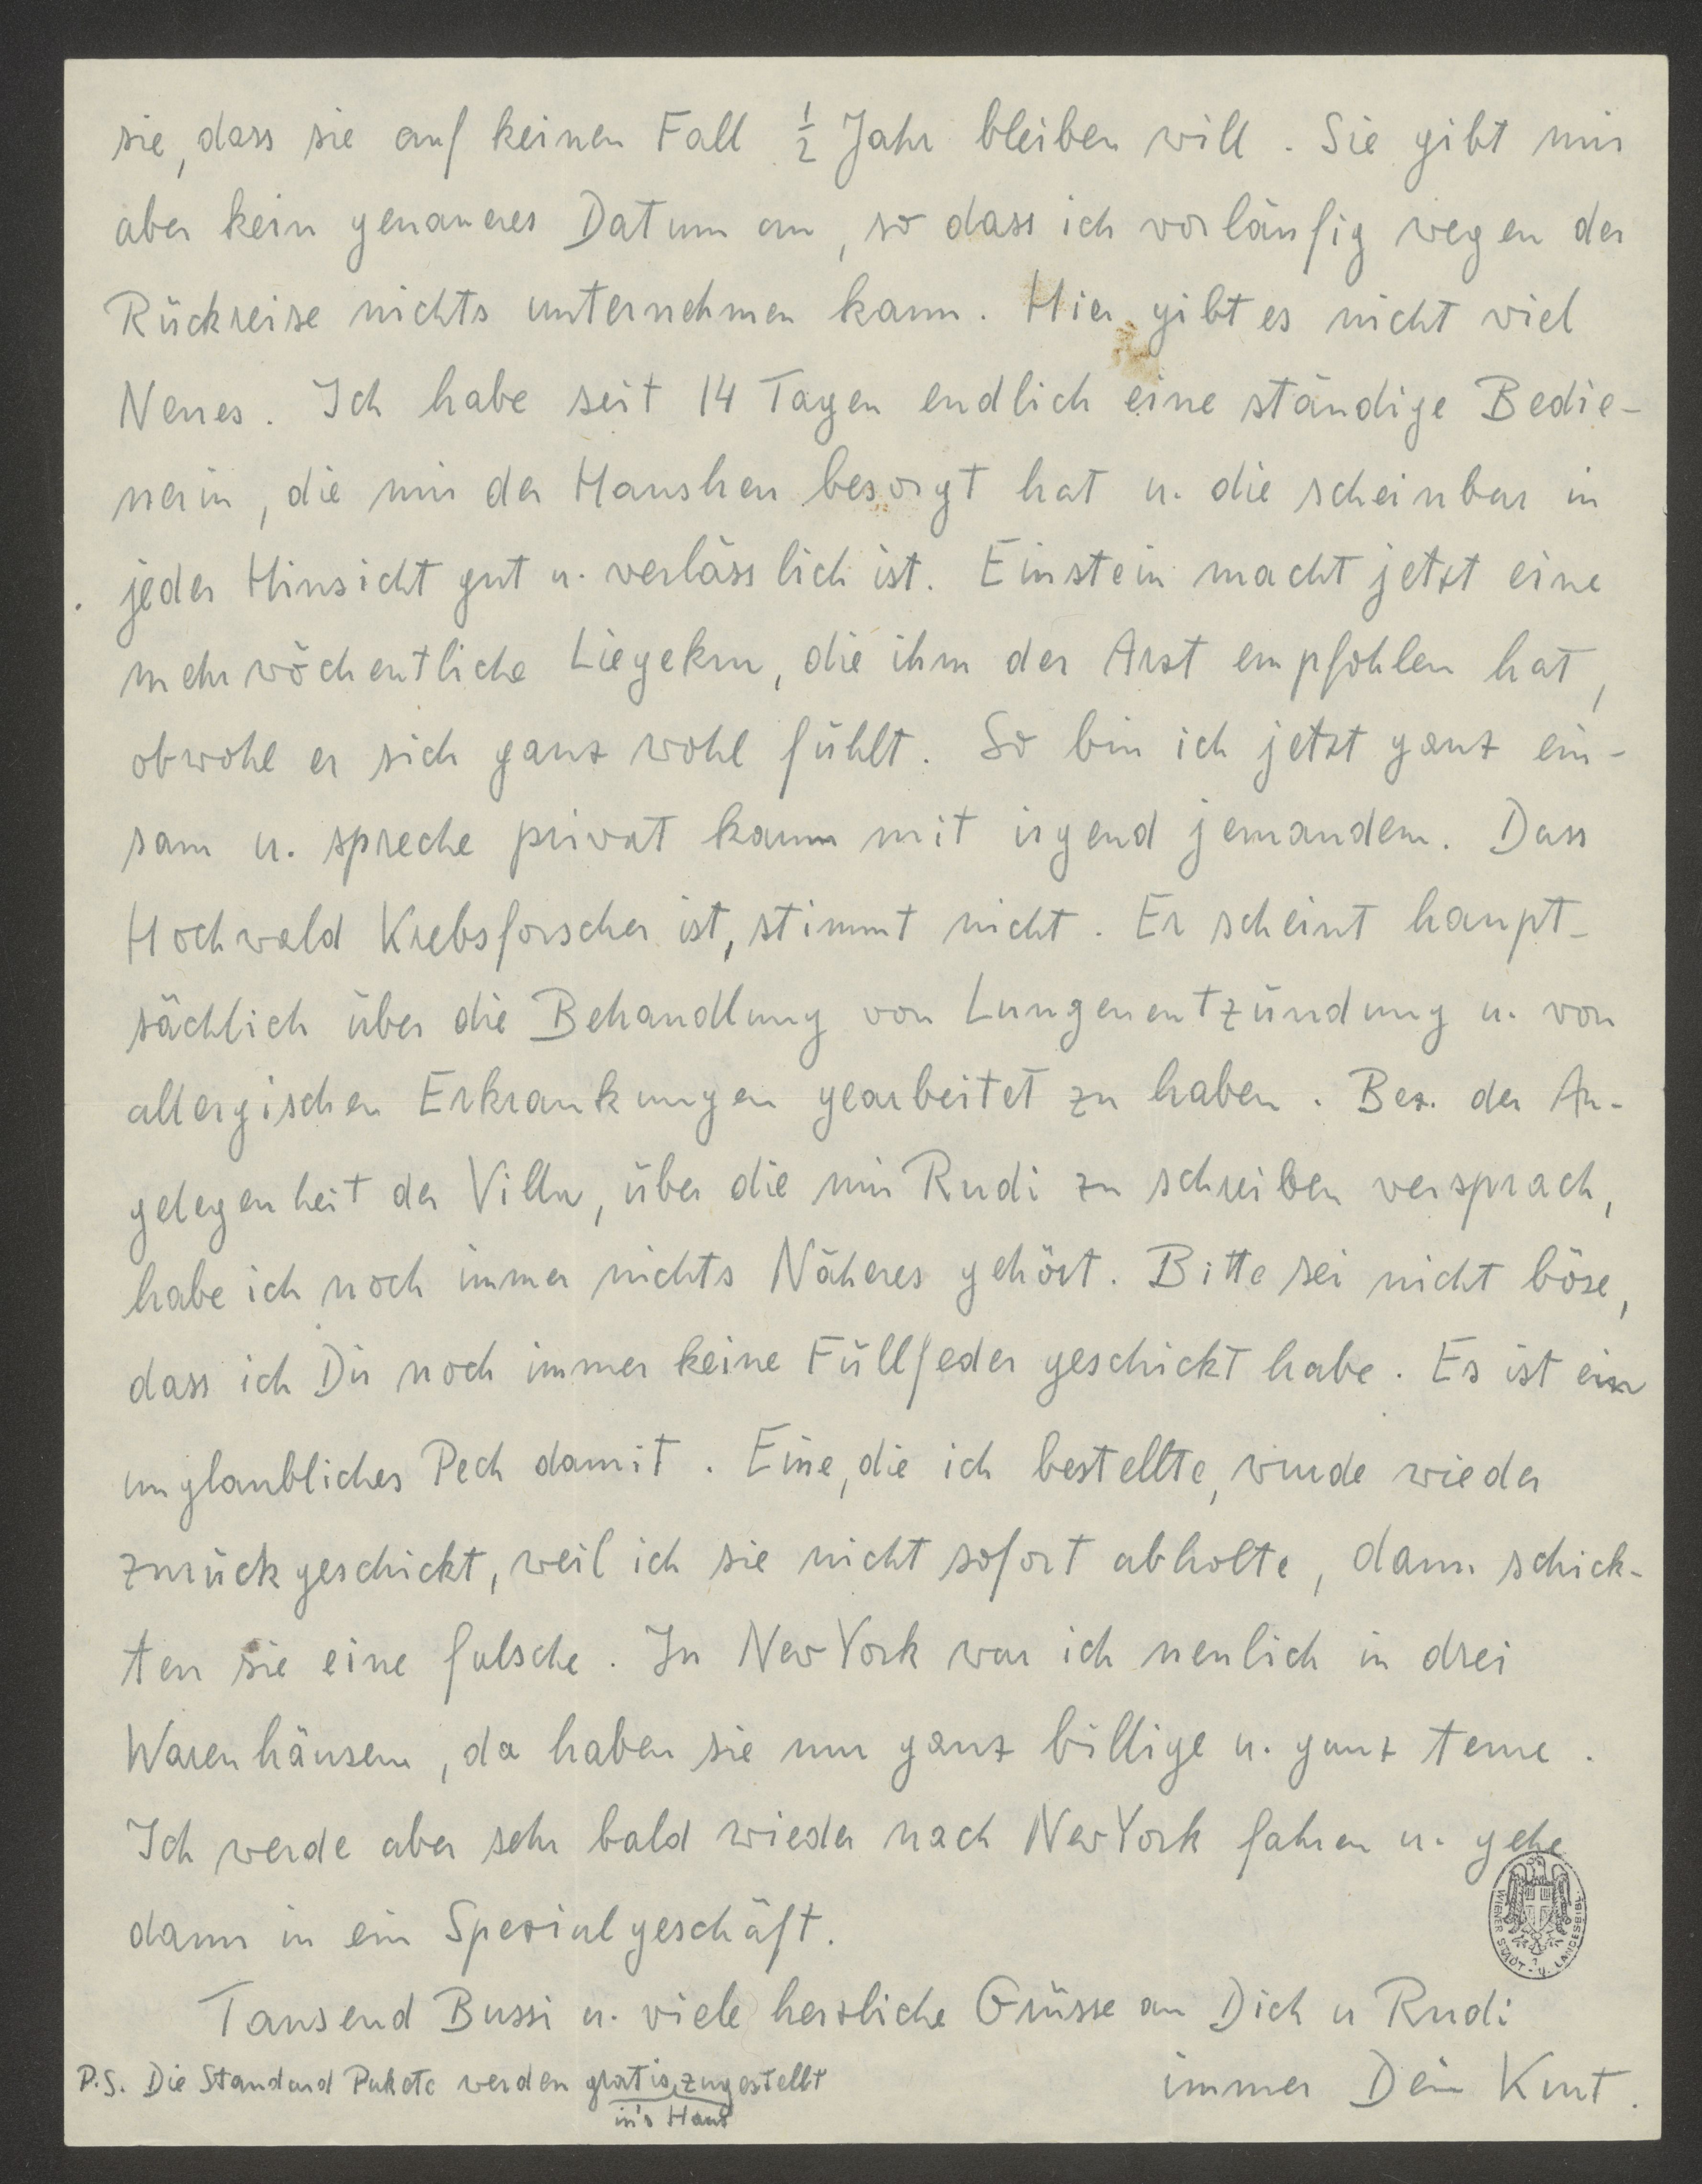 sie, dass sie auf keinen Fall ½ Jahr bleiben will. Sie gibt mir
aber kein genaueres Datum an, so dass ich vorläufig wegen der
Rückreise nichts unternehmen kann. Hier gibt es nicht viel
Neues. Ich habe seit 14 Tagen endlich eine ständige Bedie-
nerin, die mir der Hausherr besorgt hat u. die scheinbar in
jeder Hinsicht gut u. verlässlich ist. Einstein macht jetzt eine
mehrwöchentliche Liegekur, die ihm der Arzt empfohlen hat,
obwohl er sich ganz wohl fühlt. So bin ich jetzt ganz ein-
sam u. spreche privat kaum mit irgend jemandem. Dass
Hochwald Krebsforscher ist, stimmt nicht. Er scheint haupt-
sächlich über die Behandlung von Lungenentzündung u. von
allergischen Erkrankungen gearbeitet zu haben. Bez. der An-
gelegenheit der Villa, über die mir Rudi zu schreiben versprach,
habe ich noch immer nichts Näheres gehört. Bitte sei nicht böse,
dass ich Dir noch immer keine Füllfeder geschickt habe. Es ist ein
unglaubliches Pech damit. Eine, die ich bestellte, wurde wieder
zurückgeschickt, weil ich sie nicht sofort abholte, dann schick-
ten sie eine falsche. In New York war ich neulich in drei
Warenhäusern, da haben sie nur ganz billige u. ganz teure.
Ich werde aber sehr bald wieder nach New York fahren u. gehe
dann in ein Spezialgeschäft.
WIENER STADT- U. LANDESBIBL.
Tausend Bussi u. viele herzliche Grüsse an Dich u Rudi
immer Dein Kurt.
P.S. Die Standard Pakete werden gratis, zugestellt
in's Haus